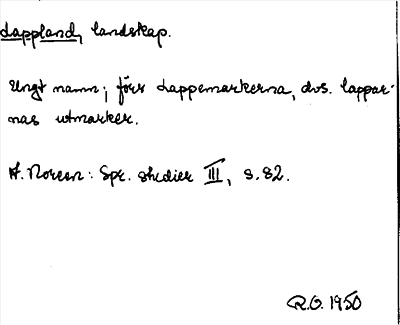 Lappland, landskap.
Ungt namn; förr Lappemarkerna, dvs. lappar-
nas utmarker.
A. Noreen: Spr. studier III, s. 82.
R.O. 1950